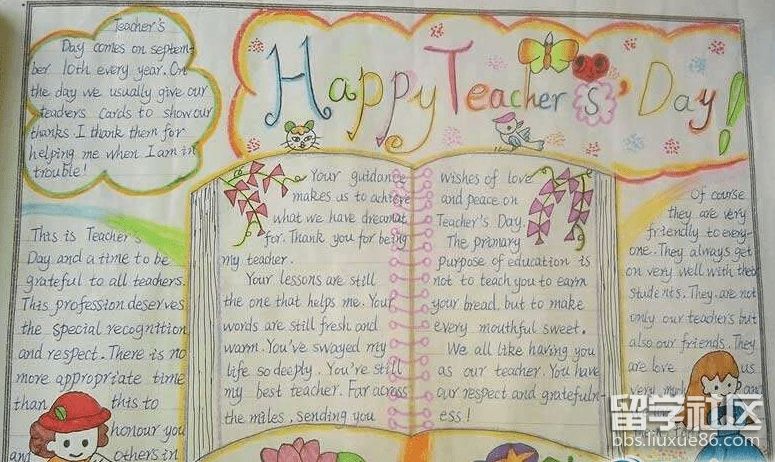 Teacher's
Day comes on septem-
ber 10th every year. On
the day we usually give our
teachers cards to show our
thanks I thank them for
helping me when I am in
trouble!
Happy Teachers' Day!
This is Teacher's
Day and a time to be
grateful to all teachers.
This profession deserves
the special recognition
and respect. There is no
more appropriate time
than this to
honour you
and others in
Your guidance
makes us to achieve
what we have dreamat
for. Thank you for being
my teacher.
Your lessons are still
the one that helps me. Your
words are still fresh and
warm. You've swayed my
life so deeply. You're still
my best teacher. Far across
the miles, sending you
wishes of love
and peace on
Teacher's Day.
The primary
purpose of education is
not to teach you to earn
your bread, but to make
every mouthful sweet.
We all like having you
as our teacher. You have
our respect and gratefuln-
ess!
Of course
they are very
friendly to every-
one. They always get
on very well with their
students. They are not
only our teachers but
also our friends. They
are love us
very much
留学社区
bbs.liuxue86.com